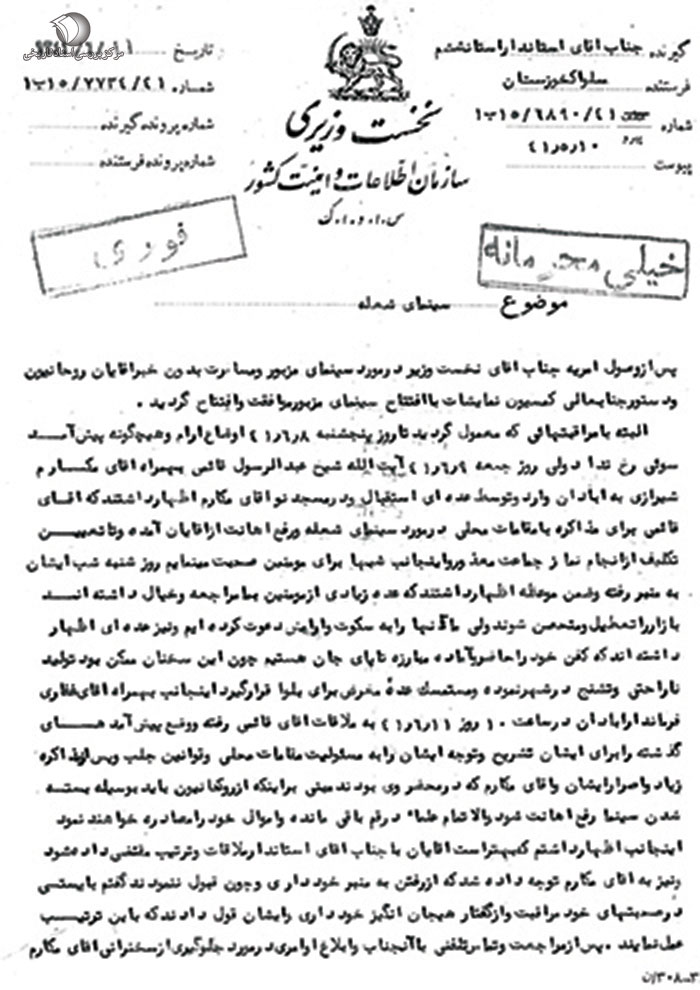 مرکز بررسی اسناد تاریخی
گیرنده جناب اقای استاندار استانششم
فرستنده ساواک خوزستان
شماره ۱۵/۶۸۹۰/۴۱ب۱
۴۱ر۵ر۱۰
پیوست
تاریخ
شماره ۱۵/۷۷۳۴/۴۱ب۱
شماره پرونده گیرنده
شماره پرونده فرستنده
نخست وزیری
سازمان اطلاعات و امنیت کشور
س.ا.و.ا.ک
خیلی محرمانه
فوری
موضوع سینمای شعله
پس از وصول امریه جناب اقای نخست وزیر در مورد سینمای مزبور ومسافرت بدون خبر اقایان روحانیون
ودستور جنابعالی کمسیون نمایشات با افتتاح سینمای مزبور موافقت وافتتاح گردید .
البته با مراقبتهائی که معمول گردید تا روز پنجشنبه ۴۱٫۶٫۸ اوضاع ارام وهیچگونه پیش آمد
سوئی رخ نداد ولی روز جمعه ۴۱٫۶٫۹ آیت الله شیخ عبدالرسول قائمی بهمراه اقای مکارم
شیرازی به ابادان وارد وتوسط عده ای استقبال ودر مسجد نو اقای مکارم اظهار داشتند که اقای
قائمی برای مذاکره با مقامات محلی در مورد سینمای شعله ورفع اهانت از اقایان آمده وتا تعیین
تکلیف از انجام نماز جماعت معذور واینجانب شبها برای مومنین صحبت مینمایم روز شنبه شب ایشان
به منبر رفته وضمن موعظه اظهار داشتند که عده زیادی از مومنین بما مراجعه وخیال داشته اند
بازار را تعطیل ومتحصن شوند ولی ما آنها را به سکوت وارامش دعوت کرده ایم ونیز عده ای اظهار
داشته اند که کفن خود را حاضر وآماده مبارزه تا پای جان هستیم چون این سخنان ممکن بود تولید
ناراحتی وتشنج در شهر نموده ومستمسک عدهٔ مغرض برای بلوا قرار گیرد اینجانب بهمراه اقای غفاری
فرماندار ابادان در ساعت ۱۰ روز ۴۱٫۶٫۱۱ به ملاقات اقای قائمی رفته ووضع پیش آمد های
گذشته را برای ایشان تشریح وتوجه ایشان را به مسئولیت مقامات محلی وقوانین جلب وپس از مذاکره
زیاد واصرار ایشان واقای مکارم که در محضر وی بودند مبنی بر اینکه از روحانیون باید بوسیله بسته
شدن سینما رفع اهانت شود والا تمام علماء در قم باقی مانده واموال خود را مصادره خواهند نمود
اینجانب اظهار داشتم که بهتر است اقایان با جناب اقای استاندار ملاقات وترتیب مقتضی داده شود
ونیز به اقای مکارم توجه داده شد که از رفتن به منبر خود داری وچون قبول ننمودند گفتم بایستی
در صحبتهای خود مراقبت واز گفتار هیجان انگیز خود داری وایشان قول دادند که باین ترتیب
عمل نمایند . پس از مراجعت وتماس تلفنی با آنجناب وابلاغ اوامری در مورد جلوگیری از سخنرانی اقای مکارم